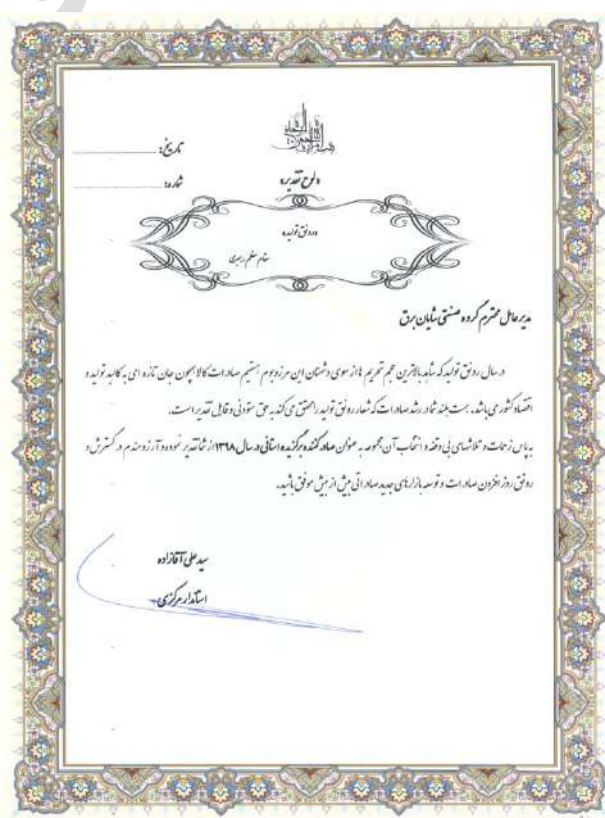 بسم الله الرحمن الرحیم
تاریخ:
شماره:
«لوح تقدیر»
«رونق تولید»
مقام معظم رهبری
مدیر عامل محترم گروه صنعتی شایان برق
در سال رونق تولید که شاهد بالاترین حجم تحریم ها از سوی دشمنان این مرز و بوم هستیم صادرات کالا همچون جان تازه ای به کالبد تولید و
اقتصاد کشور می باشد. همت بلند شما در رشد صادرات که شعار رونق تولید را محقق می کند به حق ستودنی و قابل تقدیر است.
به پاس زحمات و تلاشهای بی وقفه و انتخاب آن مجموعه به عنوان صادر کننده برگزیده استانی در سال ۱۳۹۸ از شما تقدیر نموده و آرزومندم در گسترش و
رونق روز افزون صادرات و توسعه بازارهای جدید صادراتی بیش از پیش موفق باشید.
سید علی آقازاده
استاندار مرکزی